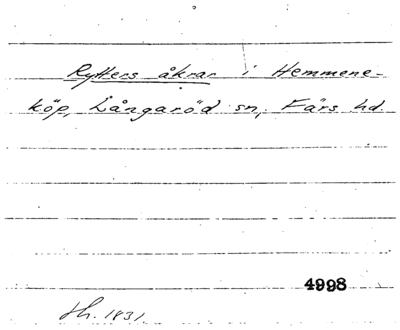 Rytters åkrar i Hemmene-
köp, Långaröd sn, Färs hd.
4998
Hh. 1831